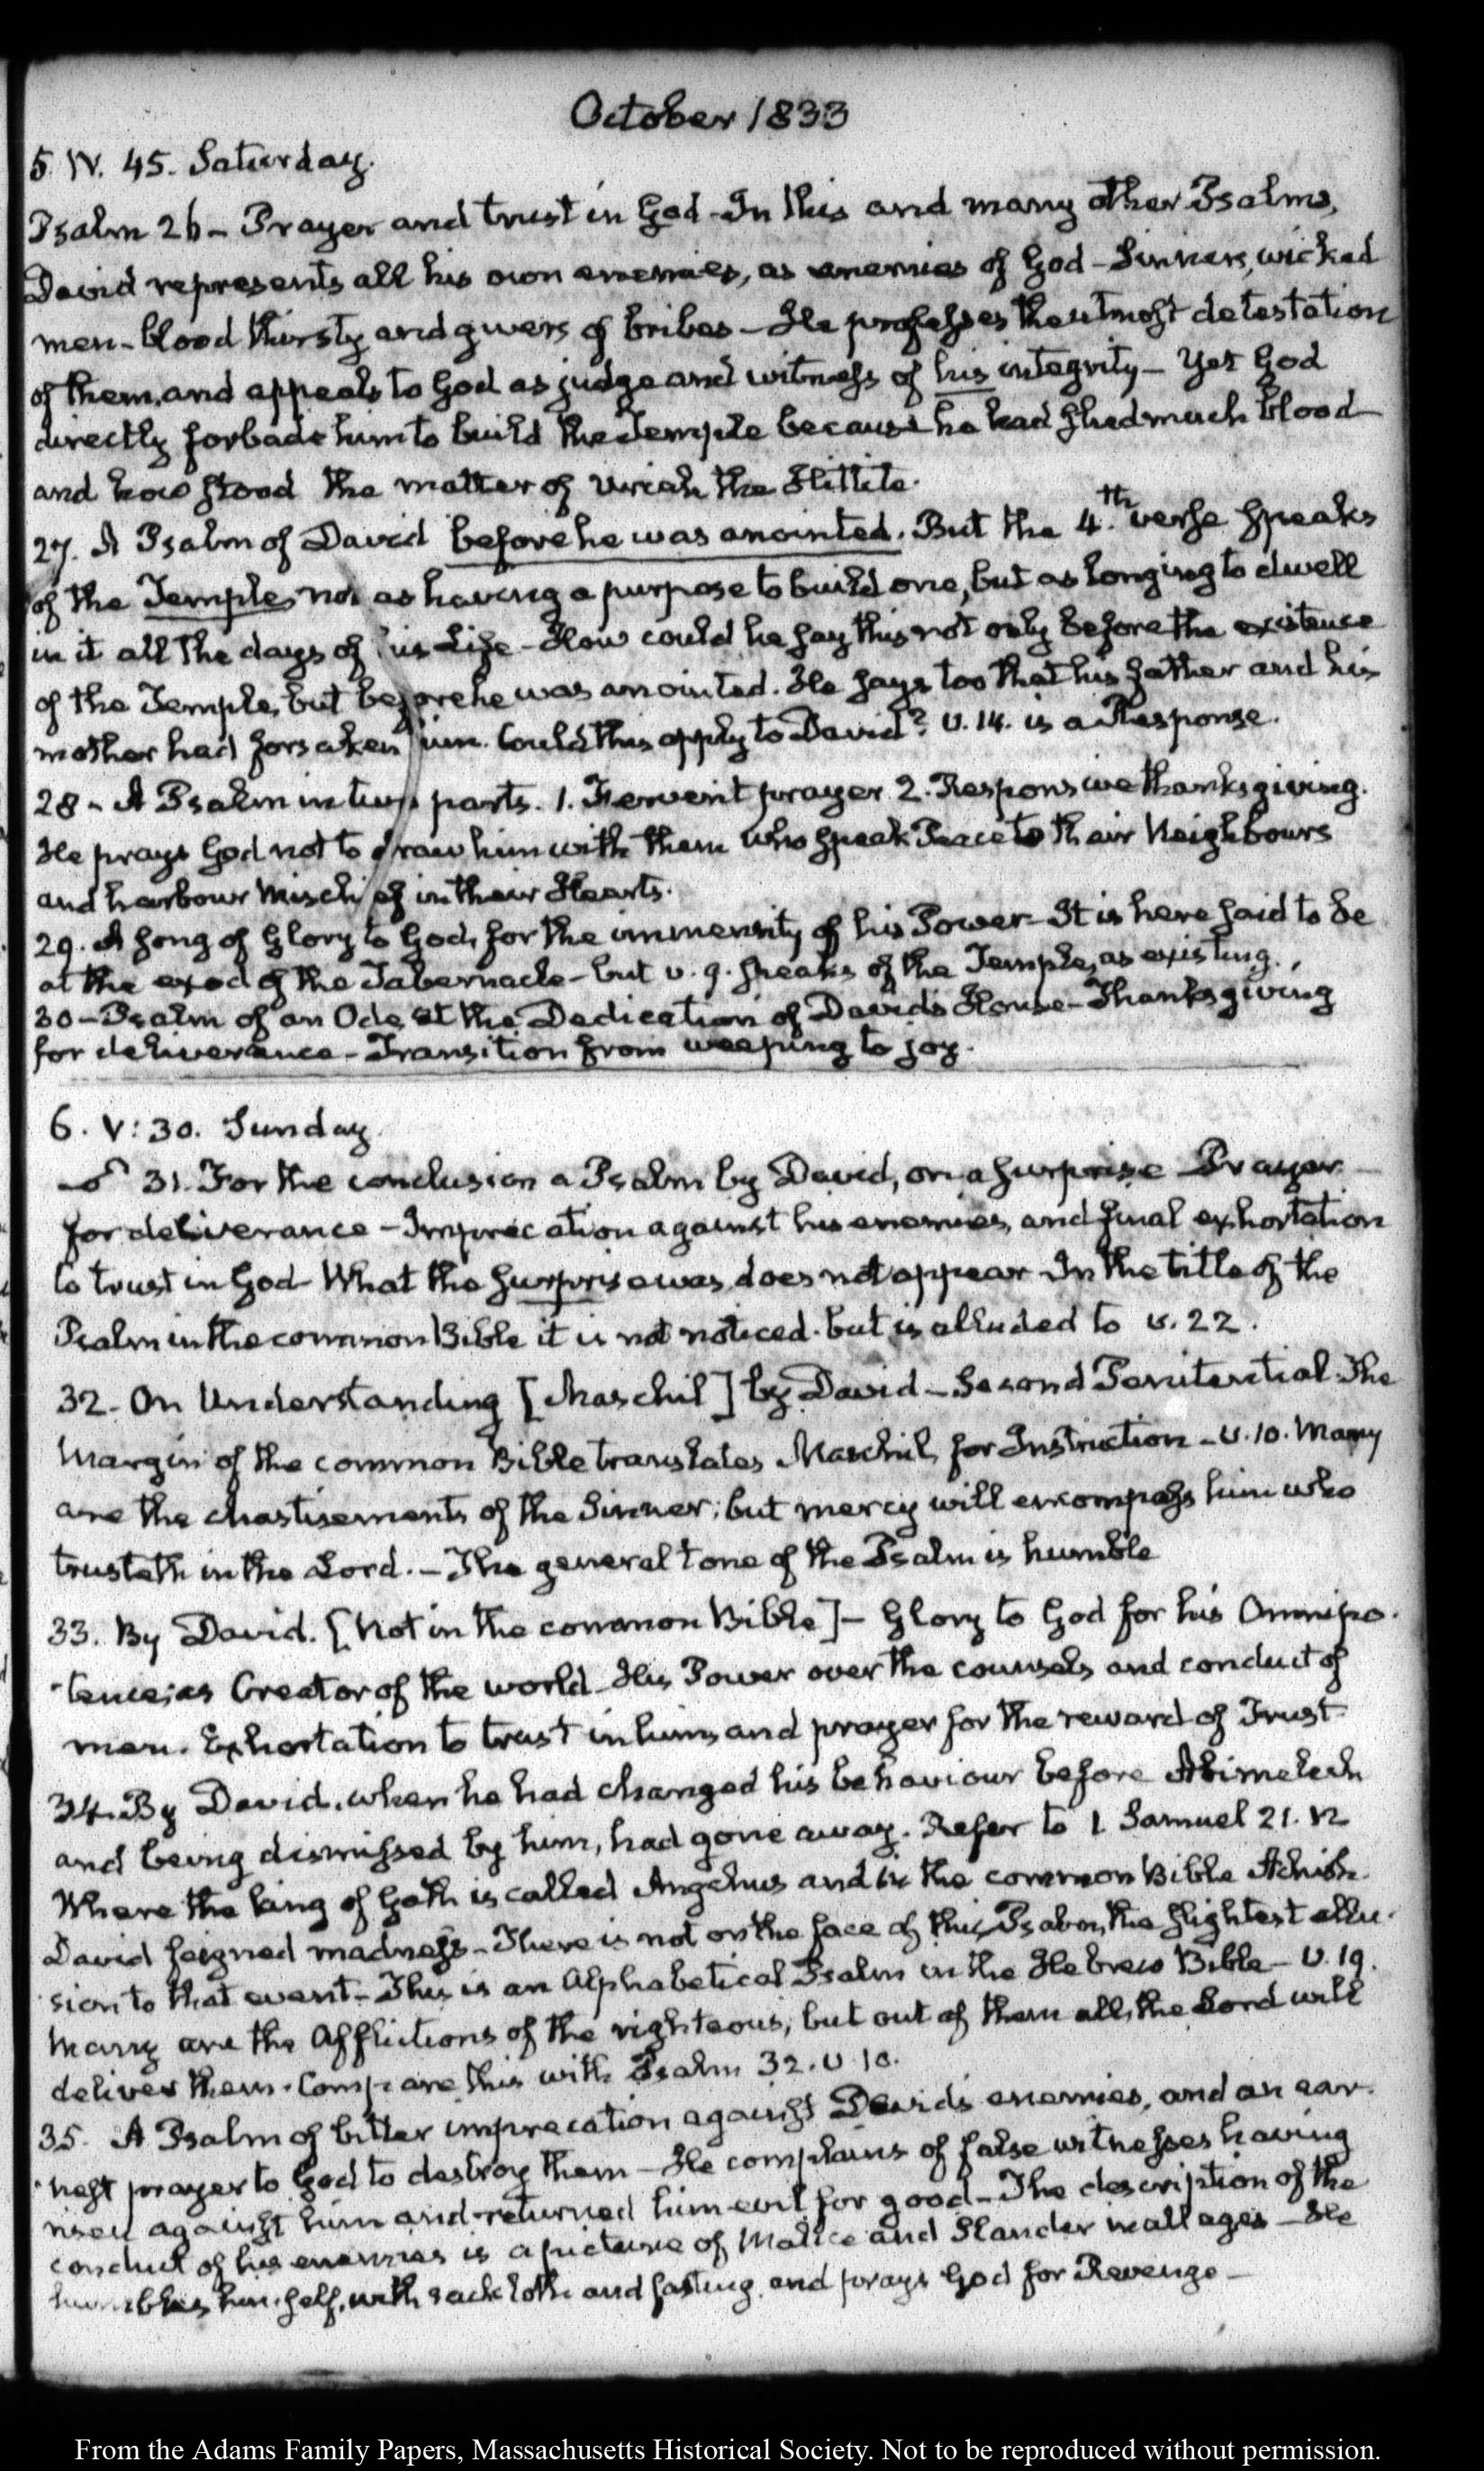 October 1833
5. IV. 45. Saturday.
Psalm 26 - Prayer and trust in God - In this and many other Psalms,
David represents all his own enemies, as enemies of God - Sinners, wicked
men - blood thirsty and givers of bribes - He professes the utmost detestation
of them, and appeals to God as judge and witness of his integrity - Yet God
directly forbade him to build the Temple because he had shed much blood -
and how stood the matter of Uriah the Hittite.
27. A Psalm of David before he was anointed. But the 4.th verse speaks
of the Temple, not as having a purpose to build one, but as longing to dwell
in it all the days of his Life - How could he say this not only before the existence
of the Temple, but before he was anointed. He says too that his father and his
mother had forsaken him. Could this apply to David? v. 14. is a Response.
28 - A Psalm in two parts. 1. Fervent prayer 2. Responsive thanksgiving.
He prays God not to draw him with them who speak Peace to their Neighbours
and harbour Mischief in their Hearts.
29. A song of Glory to God, for the immensity of his Power - It is here said to be
at the exod of the Tabernacle - but v. 9. speaks of the Temple, as existing.
30 - Psalm of an Ode, at the Dedication of David's House - Thanksgiving
for deliverance - Transition from weeping to joy.
6. V: 30. Sunday
31. For the conclusion a Psalm by David, on a surprise Prayer
for deliverance - Imprecation against his enemies, and final exhortation
to trust in God - What the surprise was, does not appear - In the title of the
Psalm in the common Bible it is not noticed. but is alluded to v. 22.
32 - On Understanding [Maschil] by David - Second Penitential - The
Margin of the common Bible translates Maschil, for Instruction - v. 10. Many
are the chastisements of the Sinner; but mercy will encompass him who
trusteth in the Lord. - The general tone of the Psalm is humble
33. By David. [Not in the common Bible] - Glory to God for his Omnipo-
-tence; as Creator of the world - His Power over the counsels and conduct of
men. Exhortation to trust in him, and prayer for the reward of Trust
34. By David. when he had changed his behaviour before Abimelech
and being dismissed by him, had gone away. Refer to 1 Samuel 21. 12
Where the king of Gath is called Angchus and in the common Bible Achish.
David feigned madness - There is not on the face of this Psalm, the slightest allu-
-sion to that event - This is an Alphabetical Psalm in the Hebrew Bible - v. 19.
Many are the Afflictions of the righteous; but out of them all, the Lord will
deliver them. Compare this with Psalm 32. v. 10.
35. A Psalm of bitter imprecation against David's enemies, and an ear-
-nest prayer to God to destroy them - He complains of false witnesses having
risen against him and returned him evil for good - The description of the
conduct of his enemies is a picture of Malice and Slander in all ages - He
humbles himself, with sackcloth and fasting, and prays God for Revenge -
From the Adams Family Papers, Massachusetts Historical Society. Not to be reproduced without permission.